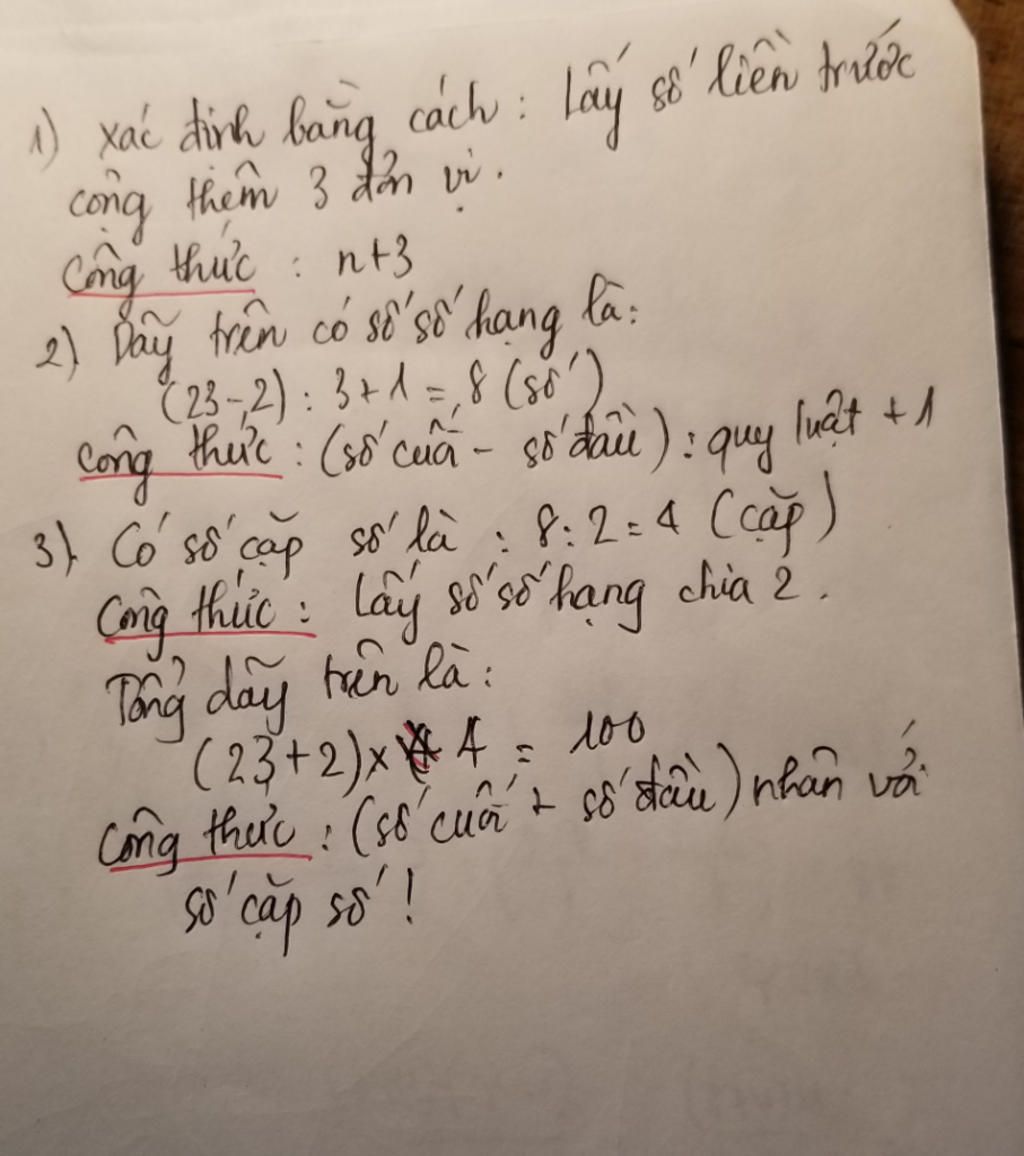 1) xác định bằng cách : Lấy số liền trước
cộng thêm 3 đơn vị.
Công thức : n+3
2) Dãy trên có số số hạng là:
(23-2) : 3 + 1 = 8 (số)
Công thức : (số cuối - số đầu) : quy luật + 1
3) Có số cặp số là : 8 : 2 = 4 (cặp)
Công thức : Lấy số số hạng chia 2.
Tổng dãy trên là :
(23+2) x 4 = 100
Công thức : (số cuối + số đầu) nhân với
số cặp số !